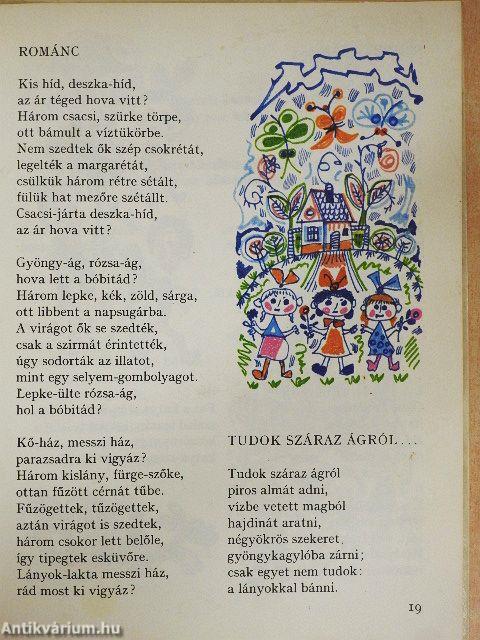 ROMÁNC
Kis híd, deszka-híd,
az ár téged hova vitt?
Három csacsi, szürke törpe,
ott bámult a víztükörbe.
Nem szedtek ők szép csokrétát,
legelték a margarétát,
csülkük három rétre sétált,
fülük hat mezőre szétállt.
Csacsi-járta deszka-híd,
az ár hova vitt?
Gyöngy-ág, rózsa-ág,
hova lett a bóbitád?
Három lepke, kék, zöld, sárga,
ott libbent a napsugárba.
A virágot ők se szedték,
csak a szirmát érintették,
úgy sodorták az illatot,
mint egy selyem-gombolyagot.
Lepke-ülte rózsa-ág,
hol a bóbitád?
Kő-ház, messzi ház,
parazsadra ki vigyáz?
Három kislány, fürge-szőke,
ottan fűzött cérnát tűbe.
Fűzögettek, tűzögettek,
aztán virágot is szedtek,
három csokor lett belőle,
így tipegtek esküvőre.
Lányok-lakta messzi ház,
rád most ki vigyáz?
TUDOK SZÁRAZ ÁGRÓL...
Tudok száraz ágról
piros almát adni,
vízbe vetett magból
hajdinát aratni,
négyökrös szekeret
gyöngykagylóba zárni;
csak egyet nem tudok:
a lányokkal bánni.
19
Antikvárium.hu